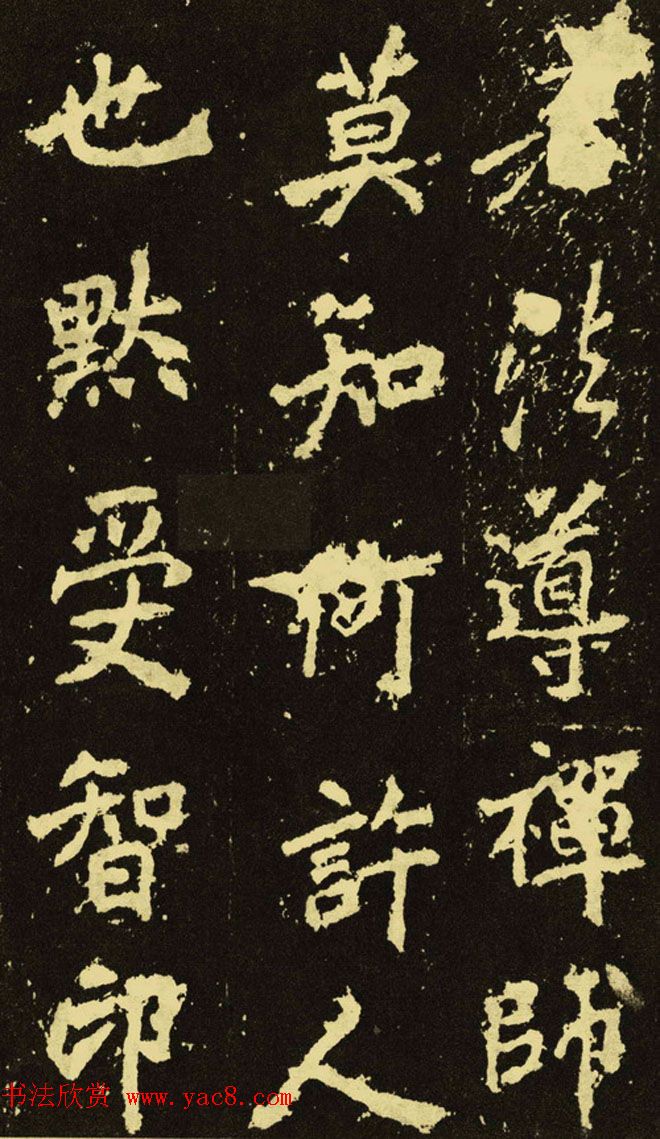 法導禪師
莫知何許人
也默受智印
书法欣赏 www.yac8.com